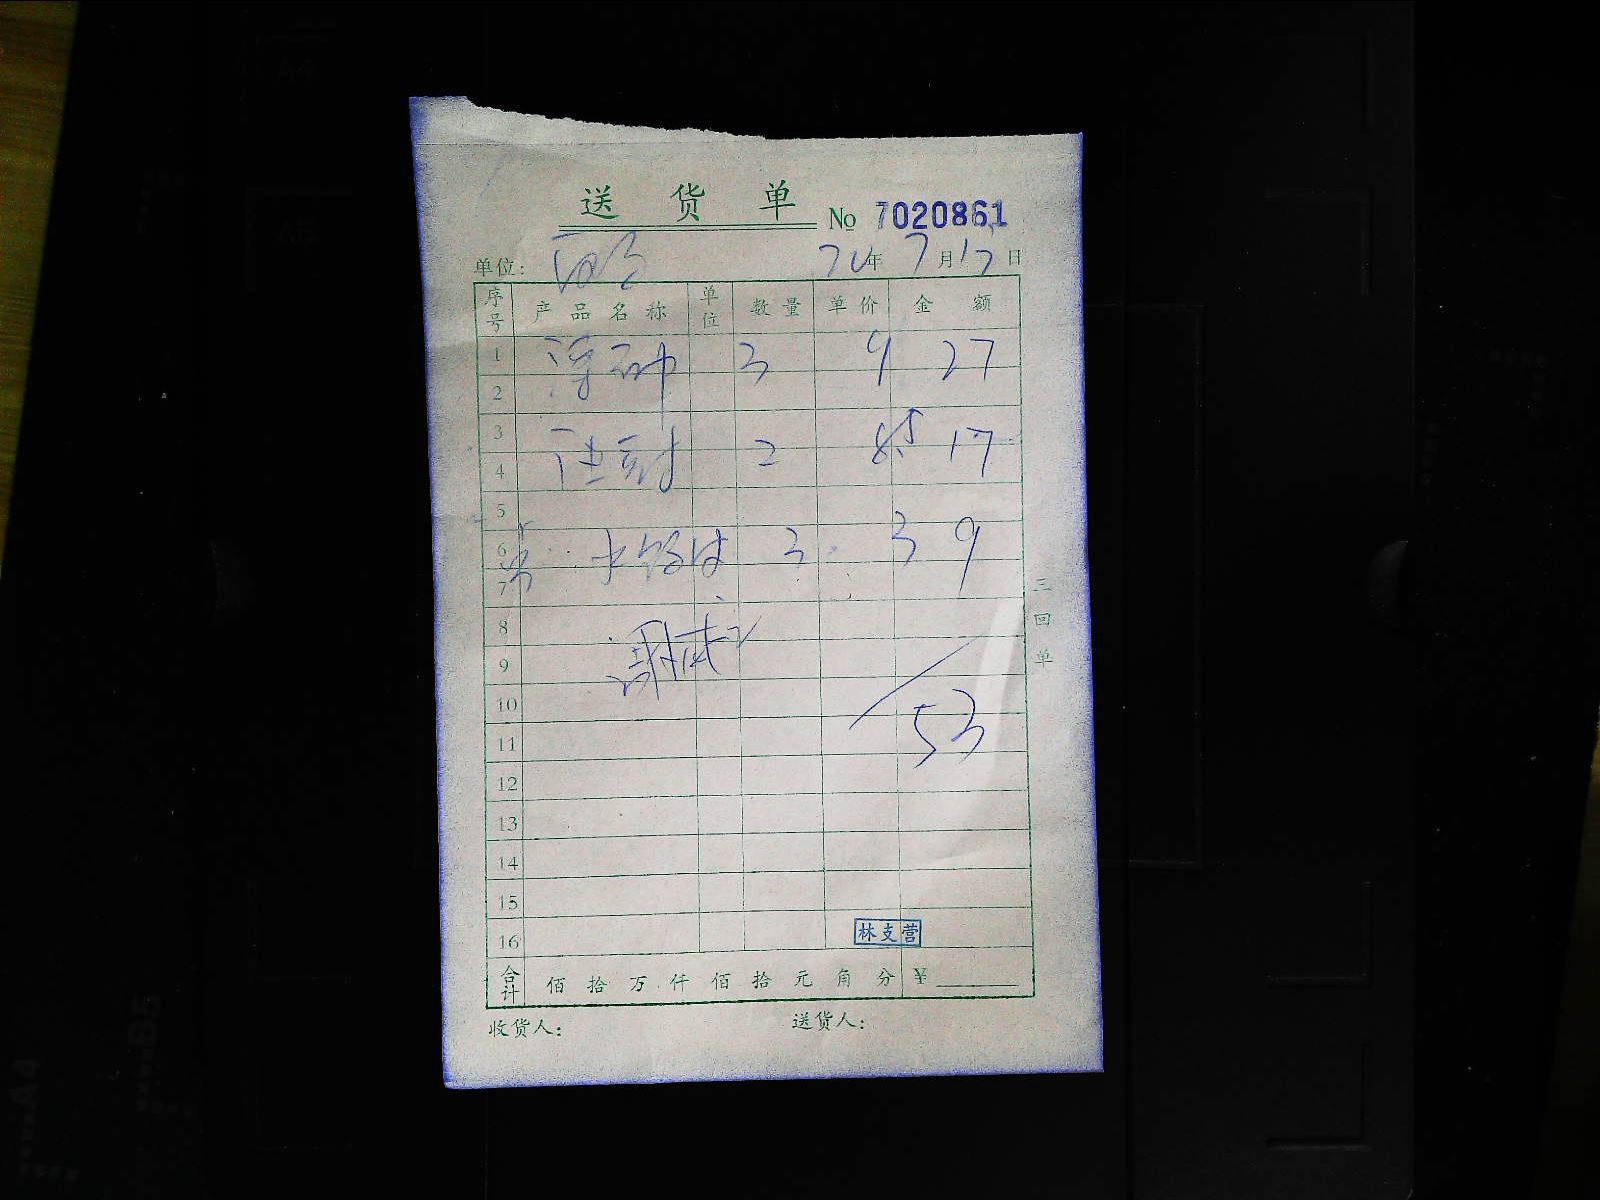 送货单 No 7020861
单位: 年 7月17日
序号 产品名称 单位 数量 单价 金额
1 3 9 27
2
3 2 8.5 17
4
5
6 3 3 9
7
8
9
10
53
11
12
13
14
15
林支营
16
合计 佰 拾 万 仟 佰 拾 元 角 分 ¥
收货人: 送货人:
三回单